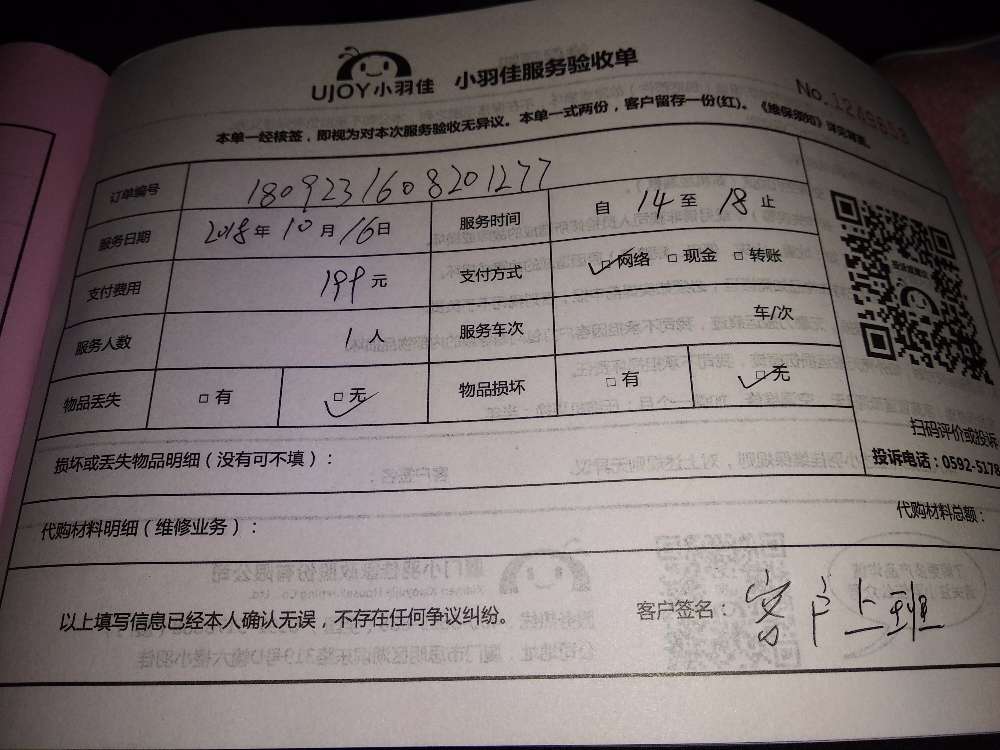 UJOY小羽佳 小羽佳服务验收单
No.1245653
本单一经核签，即视为对本次服务验收无异议。本单一式两份，客户留存一份(红)。《维保须知》详见背面。
订单编号 1809231608201277
服务日期 2018年10月16日 服务时间 自 14 至 18 止
支付费用 199元 支付方式 ☑网络 □现金 □转账
服务人数 1人 服务车次 车/次
物品丢失 □有 ☑无 物品损坏 □有 ☑无
扫码评价或投诉
投诉电话：0592-5178
损坏或丢失物品明细（没有可不填）：
代购材料明细（维修业务）： 代购材料总额：
以上填写信息已经本人确认无误，不存在任何争议纠纷。 客户签名：客户上班